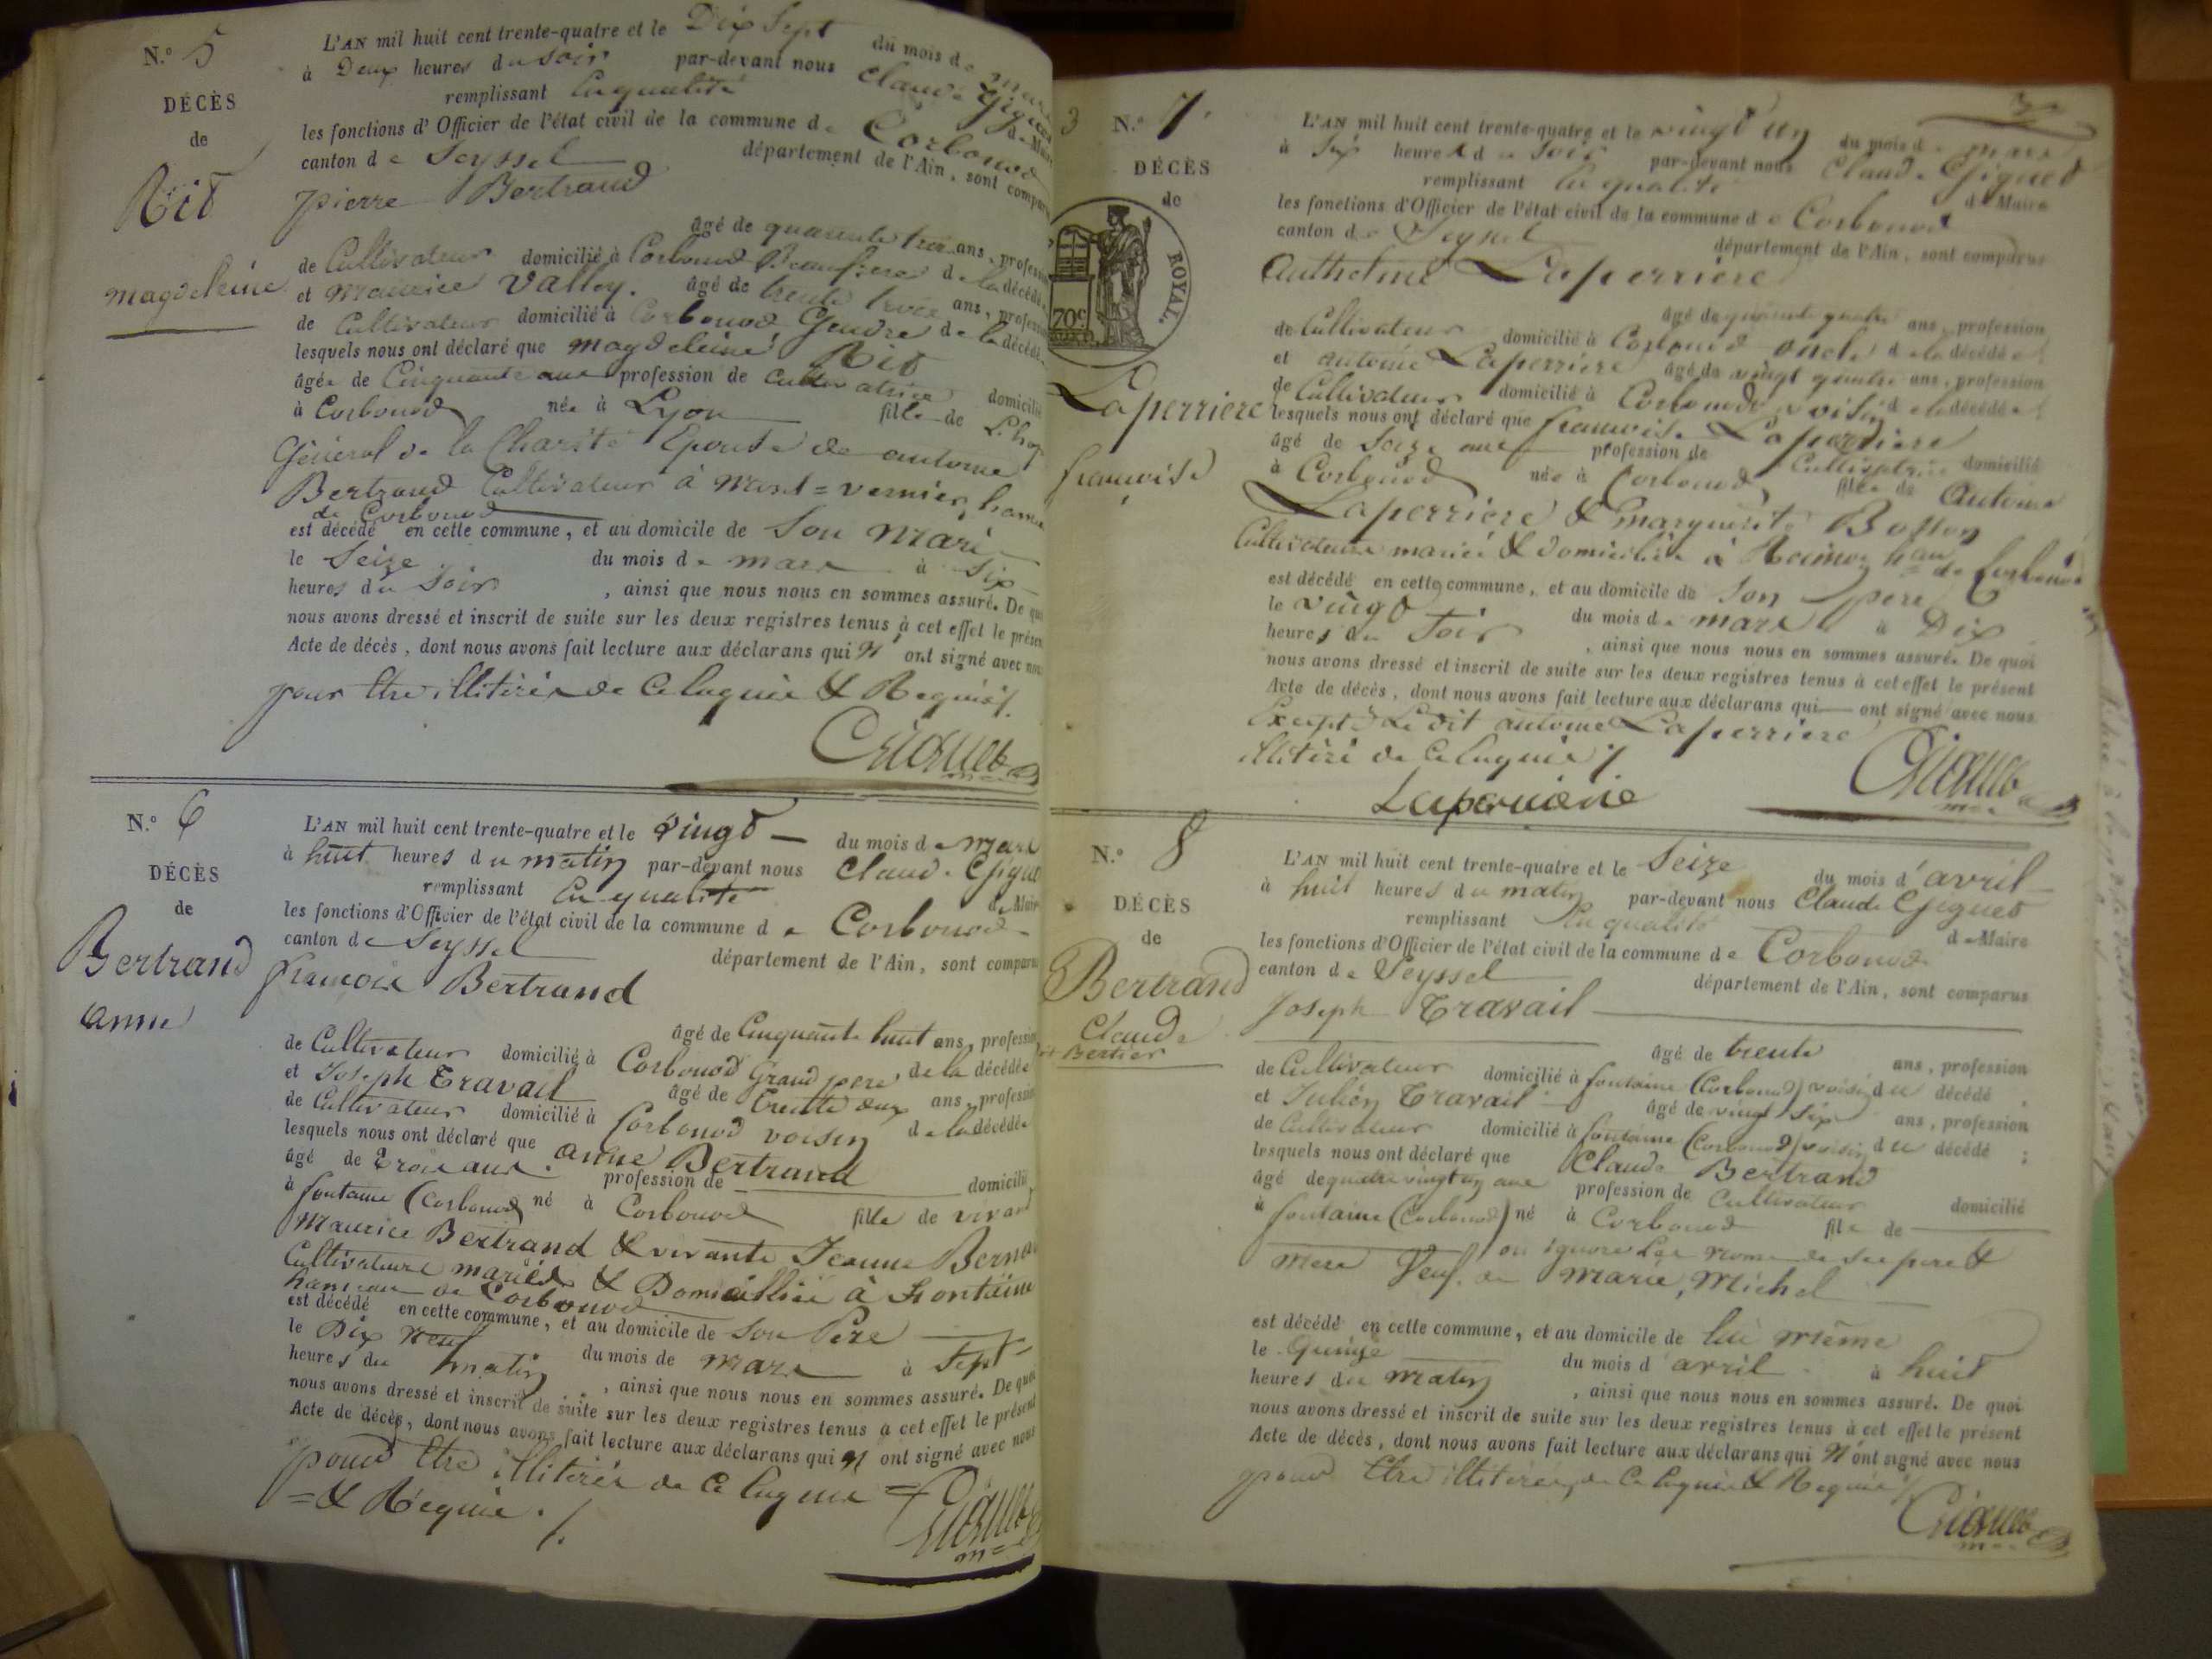 N.º 5
DÉCÈS
de
Rit
magdeleine
L'AN mil huit cent trente-quatre et le Dix Sept du mois de mars
à Deux heures du soir par-devant nous Claude Giguet
remplissant En qualité de Maire
les fonctions d'Officier de l'état civil de la commune de Corbonod
canton de Seyssel département de l'Ain, sont comparus
pierre Bertrand
âgé de quarante trois ans, profession
de Cultivateur domicilié à Corbonod Beaufrere de la décédée
et maurice Valley. âgé de trente trois ans, profession
de Cultivateur domicilié à Corbonod Gendre de la décédée
lesquels nous ont déclaré que magdeleine Rit
âgée de Cinquante ans profession de Cultivatrice domicilié
à Corbonod née à Lyon fille de L'hop
Général de la Charité Epouse de antoine
Bertrand Cultivateur à mont=vernier hameau
de Corbonod
est décédé en cette commune, et au domicile de Son Mari
le Seize du mois de mars à Six
heures du Soir, ainsi que nous nous en sommes assuré. De quoi
nous avons dressé et inscrit de suite sur les deux registres tenus à cet effet le présent
Acte de décès, dont nous avons fait lecture aux déclarans qui n'ont signé avec nous
pour Etre illitérés de Ce Enquis & Requis ./.
Giguet
N.º 6
DÉCÈS
de
Bertrand
anne
L'AN mil huit cent trente-quatre et le Vingt du mois de mars
à huit heures du matin par-devant nous Claude Giguet
remplissant En qualité de Maire
les fonctions d'Officier de l'état civil de la commune de Corbonod
canton de Seyssel département de l'Ain, sont comparus
françois Bertrand
âgé de Cinquante huit ans, profession
de Cultivateur domicilié à Corbonod Grand pere, de la décédée
et Joseph Travail âgé de Trente deux ans, profession
de Cultivateur domicilié à Corbonod voisin de la décédée
lesquels nous ont déclaré que anne Bertrand
âgé de Trois ans. profession de domicilié
à fontaine (Corbonod) né à Corbonod fille de vivant
Maurice Bertrand & vivante Jeanne
Cultivateurs mariés & Domicilliés à Fontaine
hameau de Corbonod
est décédé en cette commune, et au domicile de Son Pere
le Dix Neuf du mois de mars à Sept
heures du matin, ainsi que nous nous en sommes assuré. De quoi
nous avons dressé et inscrit de suite sur les deux registres tenus à cet effet le présent
Acte de décès, dont nous avons fait lecture aux déclarans qui n'ont signé avec nous
pour Etre illitérés de Ce Enquis =
=& Requis ./.
Giguet
3
N.º 7
DÉCÈS
de
ROYAL.
70c
Laperriere
francoise
L'AN mil huit cent trente-quatre et le vingt un du mois de mars
à Six heures du Soir par-devant nous Claude Giguet
remplissant En qualité de Maire
les fonctions d'Officier de l'état civil de la commune de Corbonod
canton de Seyssel département de l'Ain, sont comparus
Anthelme Laperriere
âgé de quarante quatre ans, profession
de Cultivateur domicilié à Corbonod oncle de la décédée
et antoine Laperriere âgé de vingt quatre ans, profession
de Cultivateur domicilié à Corbonod voisin de la décédée
lesquels nous ont déclaré que francoise Laperriere
âgé de Seize ans profession de Cultivatrice domicilié
à Corbonod née à Corbonod, fille de Antoine
Laperriere & marguerite
Cultivateurs mariés & domiciliés à hau de Corbonod
est décédé en cette commune, et au domicile de Son pere
le vingt du mois de mars à Dix
heures du Soir, ainsi que nous nous en sommes assuré. De quoi
nous avons dressé et inscrit de suite sur les deux registres tenus à cet effet le présent
Acte de décès, dont nous avons fait lecture aux déclarans qui ont signé avec nous
Excepté Le dit antoine Laperriere
illitéré de Ce Enquis ./.
Laperriere
Giguet
N.º 8
DÉCÈS
de
Bertrand
Claude
L'AN mil huit cent trente-quatre et le Seize du mois d'avril
à huit heures du matin par-devant nous Claude Giguet
remplissant En qualité de Maire
les fonctions d'Officier de l'état civil de la commune de Corbonod
canton de Seyssel département de l'Ain, sont comparus
Joseph Travail
âgé de trente ans, profession
de Cultivateur domicilié à fontaine (Corbonod) voisin du décédé
et Julien Travail âgé de vingt Six ans, profession
de Cultivateur domicilié à fontaine (Corbonod) voisin du décédé ;
lesquels nous ont déclaré que Claude Bertrand
âgé de quatre vingt un ans profession de Cultivateur domicilié
à fontaine (Corbonod) né à Corbonod fils de
on ignore Les noms de ses pere &
mere Veuf de marie, Michel
est décédé en cette commune, et au domicile de lui même
le Quinze du mois d'avril à huit
heures du matin, ainsi que nous nous en sommes assuré. De quoi
nous avons dressé et inscrit de suite sur les deux registres tenus à cet effet le présent
Acte de décès, dont nous avons fait lecture aux déclarans qui n'ont signé avec nous
pour Etre illitérés de Ce Enquis & Requis ./.
Giguet